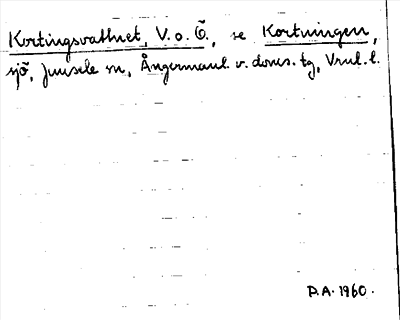 Kortingsvattnet, V. o. Ö, se Kortningen,
sjö, Junsele sn, Ångermanl. v. doms. tg, Vnl. l.
P.A. 1960.